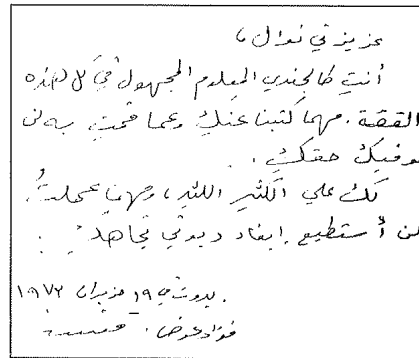 عزيزتي نوال،
أنتِ كالجندي المعلوم المجهول في كل هذه
القصة. مهما كتبنا عنكِ وعما قمتِ به لن
نوفيكِ حقكِ.
لكِ علي الكثير الكثير، ومهما عملتُ،
لن أستطيع إيفاء ديوني تجاهكِ.
بيروت في ١٩ حزيران ١٩٧٢
فؤاد عوض.